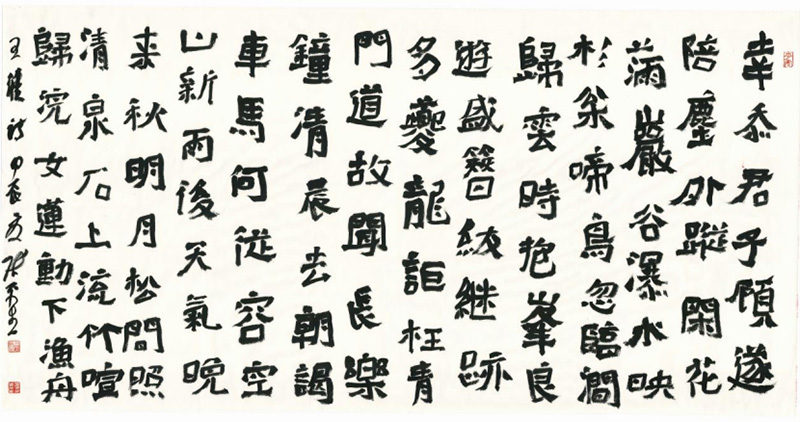 幸忝君子顧遂
陪塵外蹤閑花
滿巖谷瀑水映
杉枀啼鳥忽臨澗
歸雲時抱峯良
遊盛簪紱継跡
多夔龍詎枉青
門道故聞長樂
鐘清晨去朝謁
車馬何從容空
山新雨後天氣晚
来秋明月松間照
清泉石上流竹喧
歸浣女蓮動下漁舟
王維詩甲辰夏